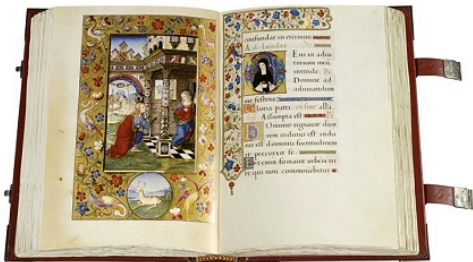 confundar in eternum
Ad laudes
Eus in adiu
torium meū
intende
Domine ad
adiuuandum
me festina
Gloria patri sicut alla
Assumpta est
Dominus regnauit deco
rem indutus est indu
tus est dominus fortitudinem
et precinxit se
Etenim firmauit orbem ter
re qui non commouebitur